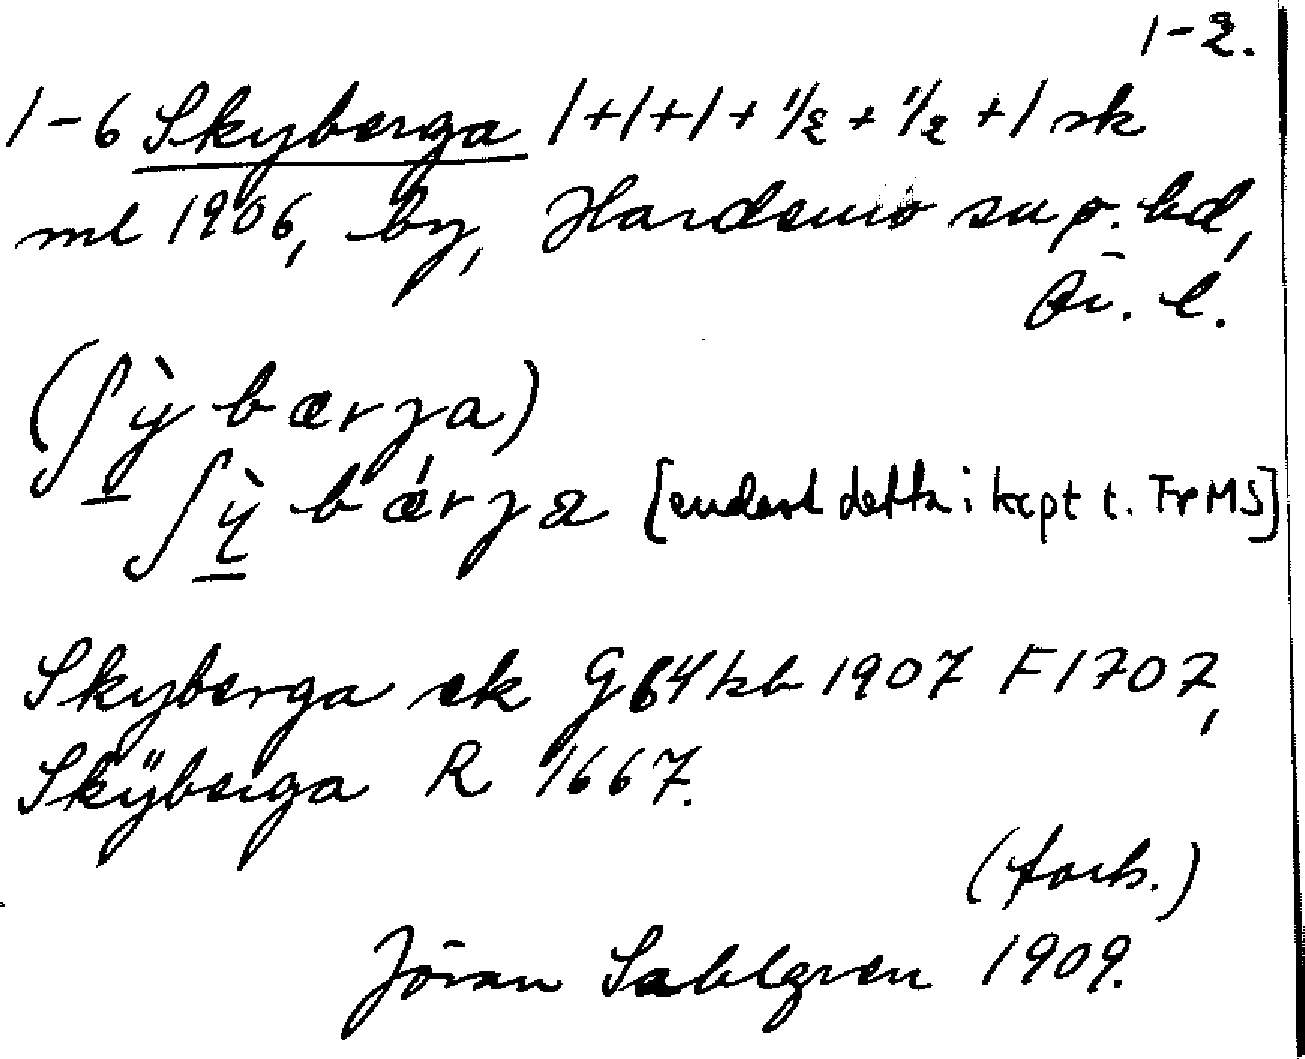 1-2.
1-6 Skyberga 1+1+1+1/2+1/2+1 sk
ml 1906, by, Hardemo sn p. hd,
Ör. l.
(ʃỳbærja)
ʃỳbǽrja [endast detta i kcpt t. FrMS]
Skyberga sk G64 kb 1907 F1707,
Skÿberga R 1667.
(forts.)
Jöran Sahlgren 1909.